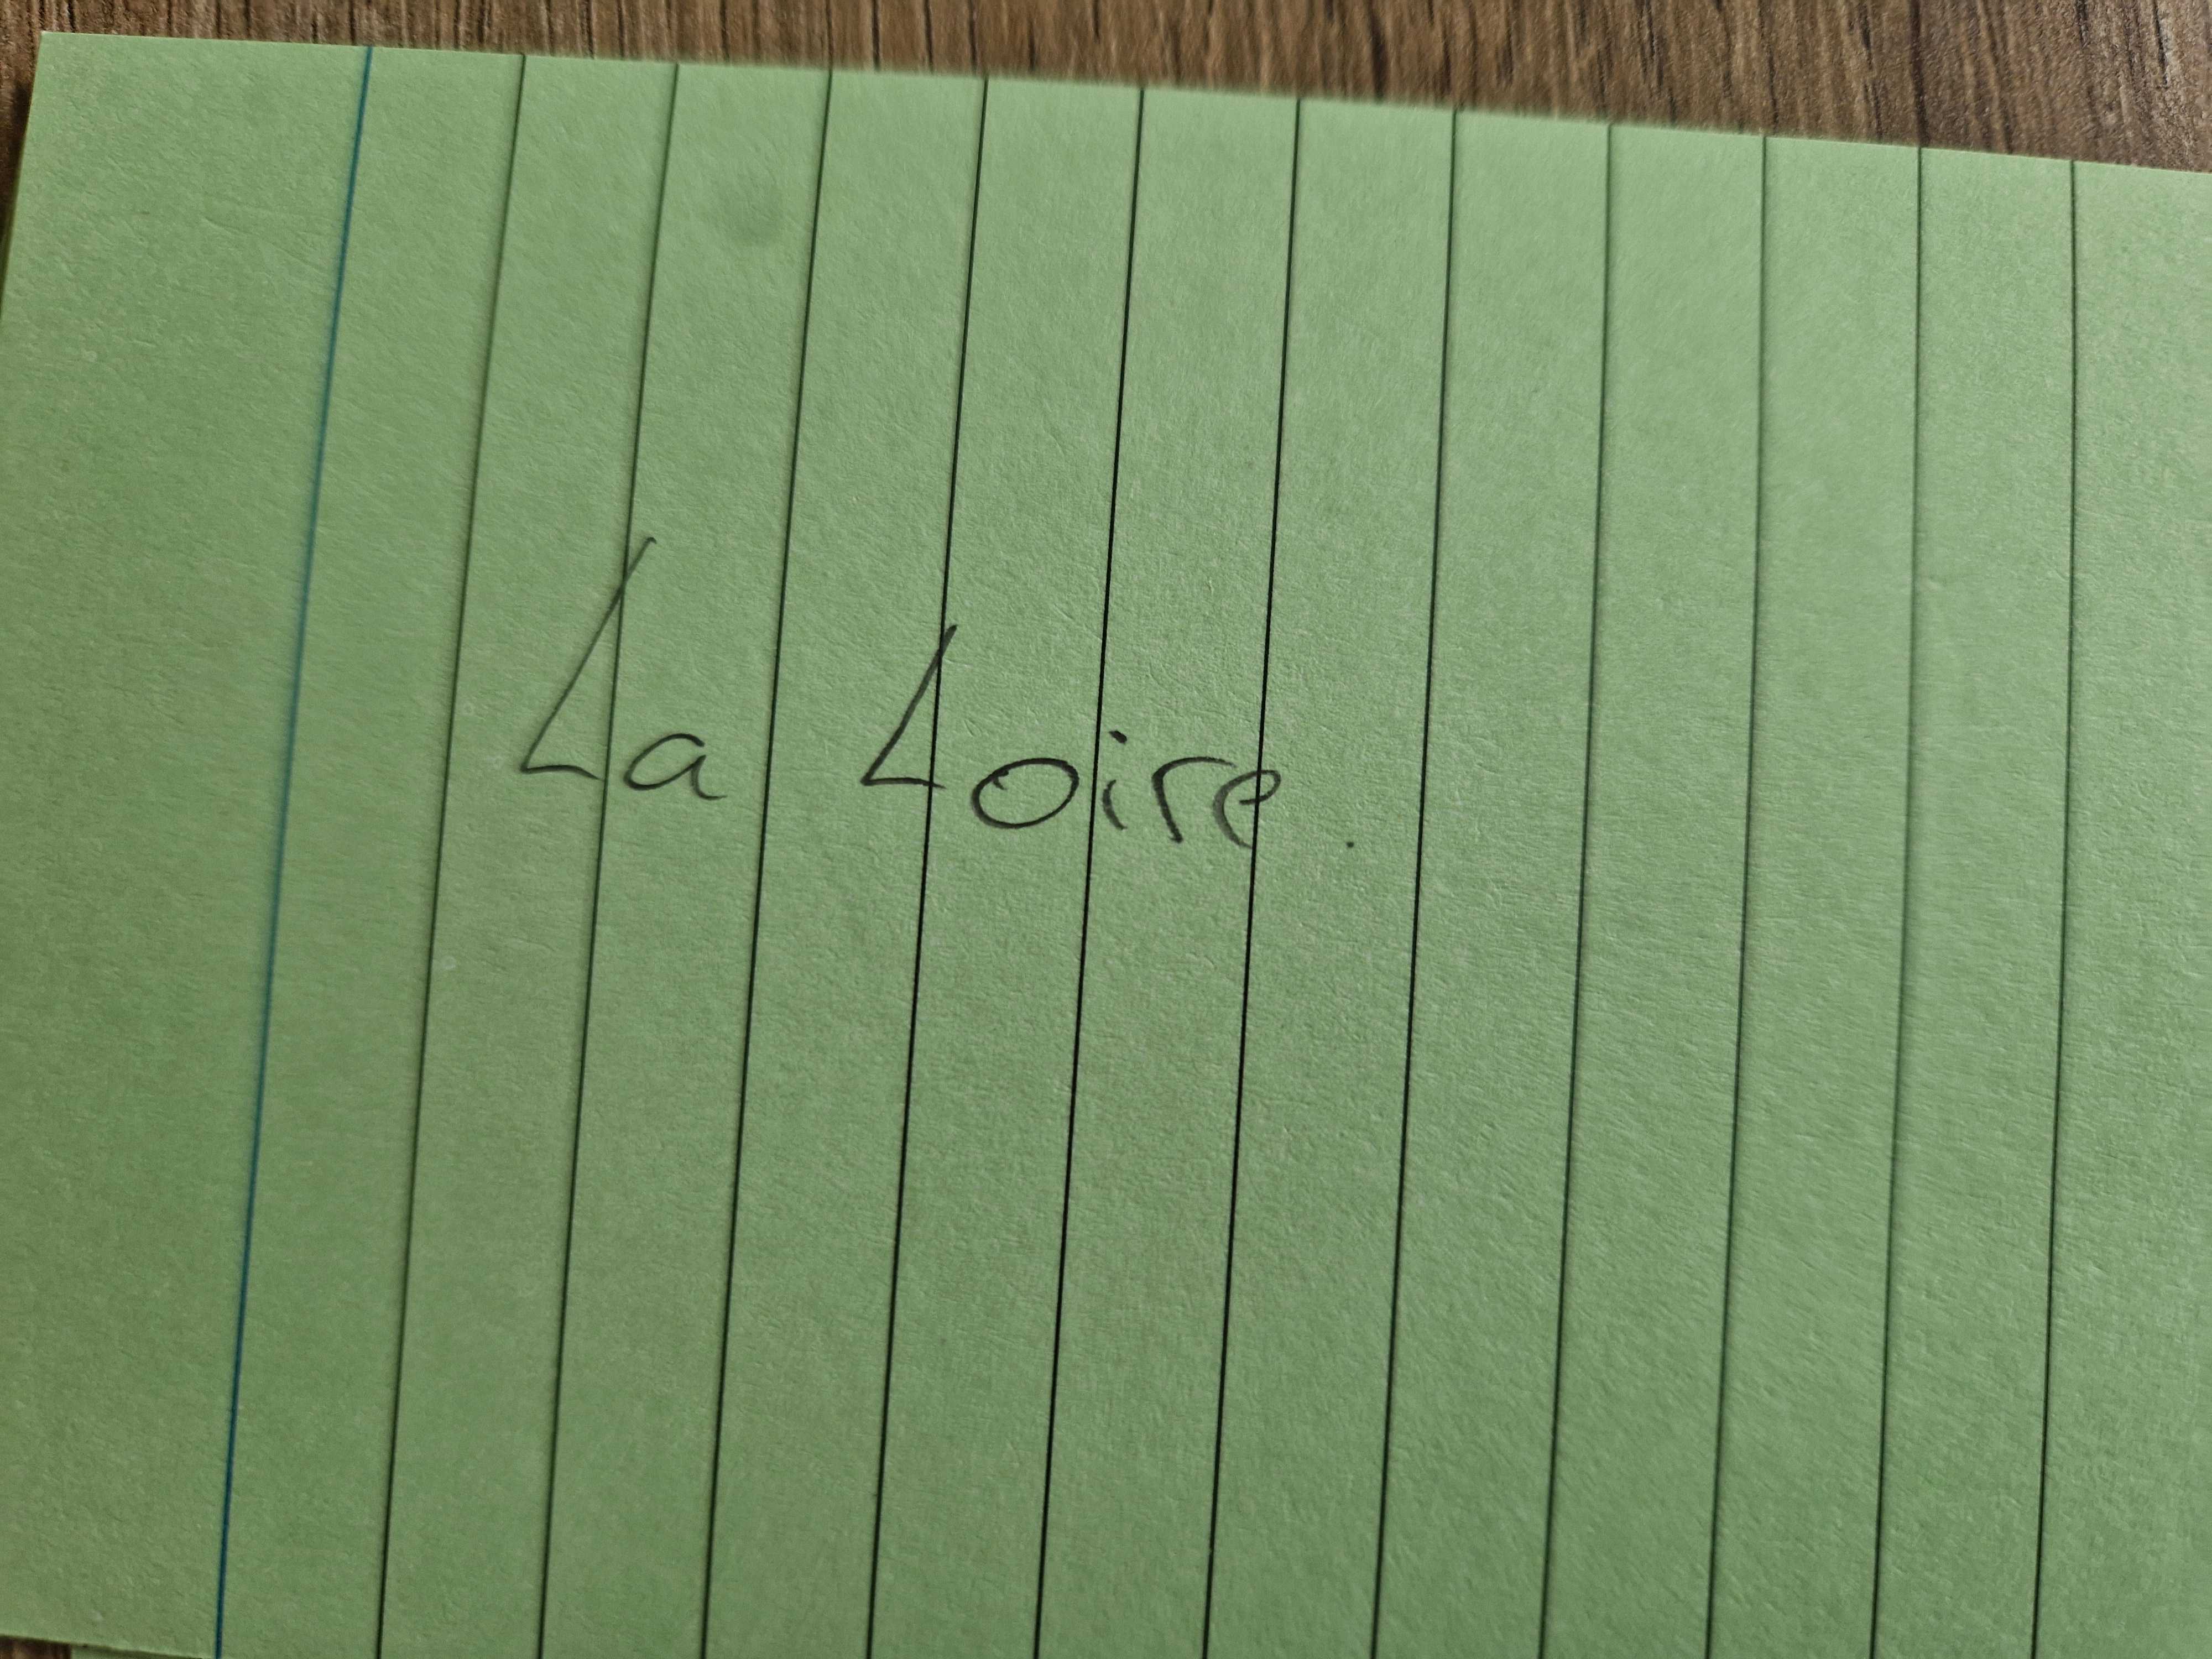 La Loire.